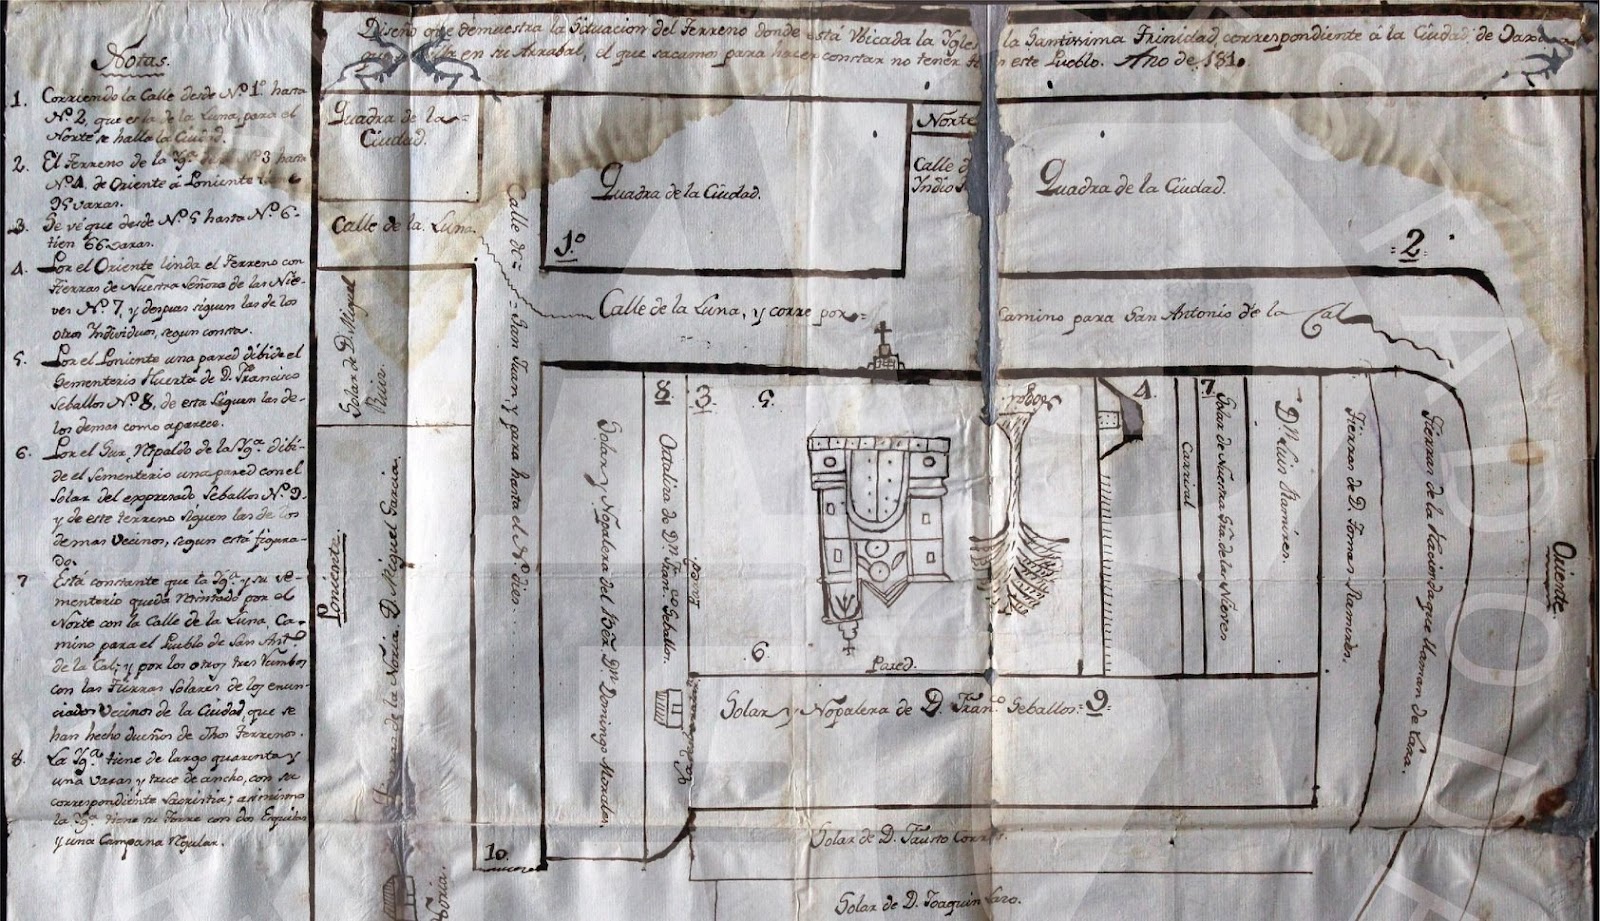 Diseño que demuestra la Situacion del Terreno donde está Vbicada la Ygles la Santissima Trinidad, correspondiente á la Ciudad, de Oaxa
en su Arrabal, el que sacamos para hacer constar no tener este Pueblo. Año de 1810.
Notas.
1. Corriendo la Calle desde Nº 1º hasta
Nº 2, que es la de la Luna, para el
Norte se halla la Ciudad.
2. El Terreno de la Ygª desde Nº 3 hasta
Nº 4. de Oriente á Poniente tiene
95 varas.
3. Se vé que desde Nº 5 hasta Nº 6-
tien 66 varas.
4. Por el Oriente linda el Terreno con
tierras de Nuestra Señora de las Nie-
ves Nº 7, y despues siguen las de los
otros Yndividuos, segun consta.
5. Por el Poniente una pared dibide el
Sementerio Huerta de D. Francisco
Seballos Nº 8, de esta siguen las de-
los demas como aparece.
6. Por el Sur, Respaldo de la Ygª dibi-
de el Sementerio una pared con el
Solar del expresado Seballos Nº 9-
y de este terreno siguen las de los
demas Vecinos, segun está figura-
do.
7 Está constante que la Ygª y su ce-
menterio queda por el
Norte con la Calle de la Luna, Ca-
mino para el Pueblo de San Antº
de la Cal; y por los otros tres rumbos
con las Tierras Solares de los enun-
ciados Vecinos de la Ciudad, que se
han hecho dueños de dhos Terrenos.
8. La Ygª tiene de largo quarenta y
una varas y trece de ancho, con su
correspondiente Sacristia; asimismo
la Ygª tiene su Torre con dos Esquilas
y una Campana Regular.
Quadra de la
Ciudad.
Calle de la Luna.
Solar de D. Miguel
Ruiz.
Poniente.
de la Noria. D. Miguel Garcia.
Noria.
Calle de San Juan, y para hasta el Nº dies.
10.
Quadra de la Ciudad.
1º
Norte
Calle d
Yndio
Quadra de la Ciudad.
2
Calle de la Luna, y corre por
Camino para San Antonio de la Cal
8
3
5
4
7
6
Solar y Nopalera del Bʳ. Dⁿ Domingo Morales.
Dⁿ Franᶜᵒ Seballos.
Pared.
Pared.
Carrisal
Solar de Nuestra Srª de la Nieves
Dⁿ Luis Ramires.
Tierras de D. Tomas Ramires.
Tierras de la Haciendaque llaman de Lara.
Oriente.
Solar y Nopalera de D. Franᶜᵒ Seballos.
9
Solar de D. Fausto Corr
Solar de D. Joaquin Laro.